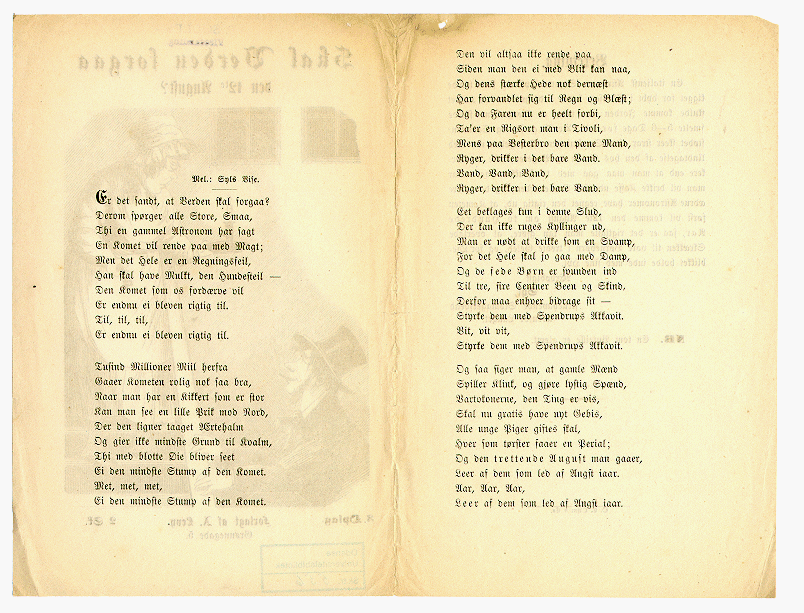 Mel.: Syls Vise.
Er det sandt, at Verden skal forgaa?
Derom spørger alle Store, Smaa,
Thi en gammel Astronom har sagt
En Komet vil rende paa med Magt;
Men det Hele er en Regningsfeil,
Han skal have Mulkt, den Hundesteil —
Den Komet som os fordærve vil
Er endnu ei bleven rigtig til.
Til, til, til,
Er endnu ei bleven rigtig til.
Tusind Millioner Miil herfra
Gaaer Kometen rolig nok saa bra,
Naar man har en Kikkert som er stor
Kan man see en lille Prik mod Nord,
Der den ligner taaget Ærtehalm
Og gier ikke mindste Grund til Kvalm,
Thi med blotte Øie bliver seet
Ei den mindste Stump af den Komet.
Met, met, met,
Ei den mindste Stump af den Komet.
Den vil altsaa ikke rende paa
Siden man den ei med Blik kan naa,
Og dens stærke Hede nok dernæst
Har forvandlet sig til Regn og Blæst;
Og da Faren nu er heelt forbi,
Ta'er en Rigsort man i Tivoli,
Mens paa Vesterbro den pæne Mand,
Ryger, drikker i det bare Vand.
Vand, Vand, Vand,
Ryger, drikker i det bare Vand.
Eet beklages kun i denne Slud,
Der kan ikke ruges Kyllinger ud,
Man er nødt at drikke som en Svamp,
For det Hele skal jo gaa med Damp,
Og de fede Børn er svunden ind
Til tre, fire Centner Been og Skind,
Derfor maa enhver bidrage sit —
Styrke dem med Spendrups Akkavit.
Vit, vit vit,
Styrke dem med Spendrups Akkavit.
Og saa siger man, at gamle Mænd
Spiller Klink, og gjøre lystig Spænd,
Vartokonerne, den Ting er vis,
Skal nu gratis have nyt Gebis,
Alle unge Piger giftes skal,
Hver som tørster faaer en Perial;
Og den trettende August man gaaer,
Leer af dem som led af Angst iaar.
Aar, Aar, Aar,
Leer af dem som led af Angst iaar.